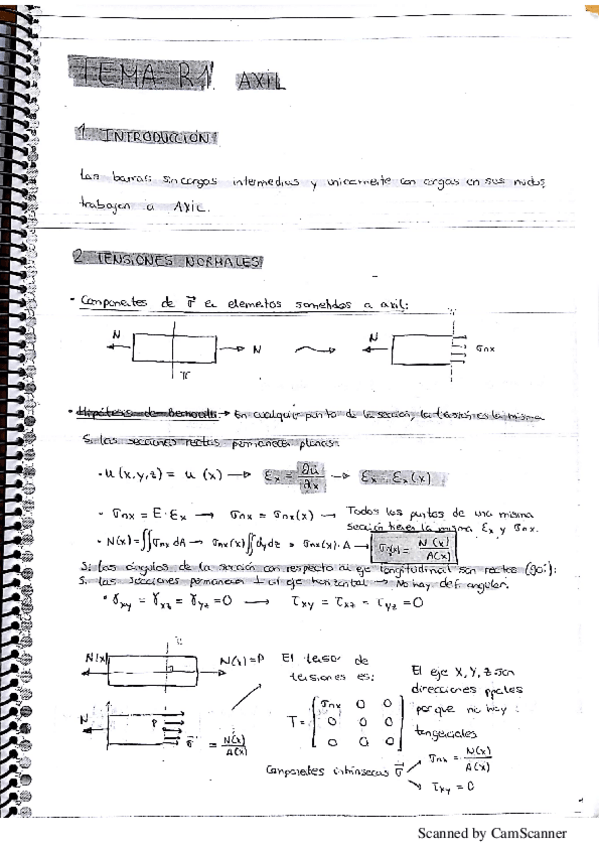 TEMA R1. AXIL
1. INTRODUCCIÓN
Las barras sin cargas intermedias y unicamente con cargas en sus nudos
trabajan a AXIL.
2. TENSIONES NORMALES
• Componentes de σ⃗ en elementos sometidos a axil:
N N N σnx
π
• Hipótesis de Bernoulli → En cualquier punto de la sección, la tensión es la misma
Si las secciones rectas permanecen planas:
• u (x,y,z) = u (x) → εx = ∂u/∂x → εx = εx(x)
• σnx = E · εx → σnx = σnx(x) → Todos los puntos de una misma
sección tienen la misma εx y σnx.
• N(x) = ∬ σnx dA → σnx(x) ∬ dydz = σnx(x) · A → σ(x) = N(x)/A(x)
Si los ángulos de la sección con respecto al eje longitudinal son rectos (90º):
Si las secciones permanecen ⊥ al eje horizontal → No hay def. angular.
• γxy = γxz = γyz = 0 → τxy = τxz = τyz = 0
N(x) N(x) = P El tensor de
tensiones es:
El eje X, Y, Z son
direcciones ppales
porque no hay
tangenciales
N P σ⃗ = N(x)/A(x)
T = [σnx 0 0
0 0 0
0 0 0]
Componentes intrínsecas σ⃗ → σnx = N(x)/A(x)
→ τxy = 0
1
Scanned by CamScanner